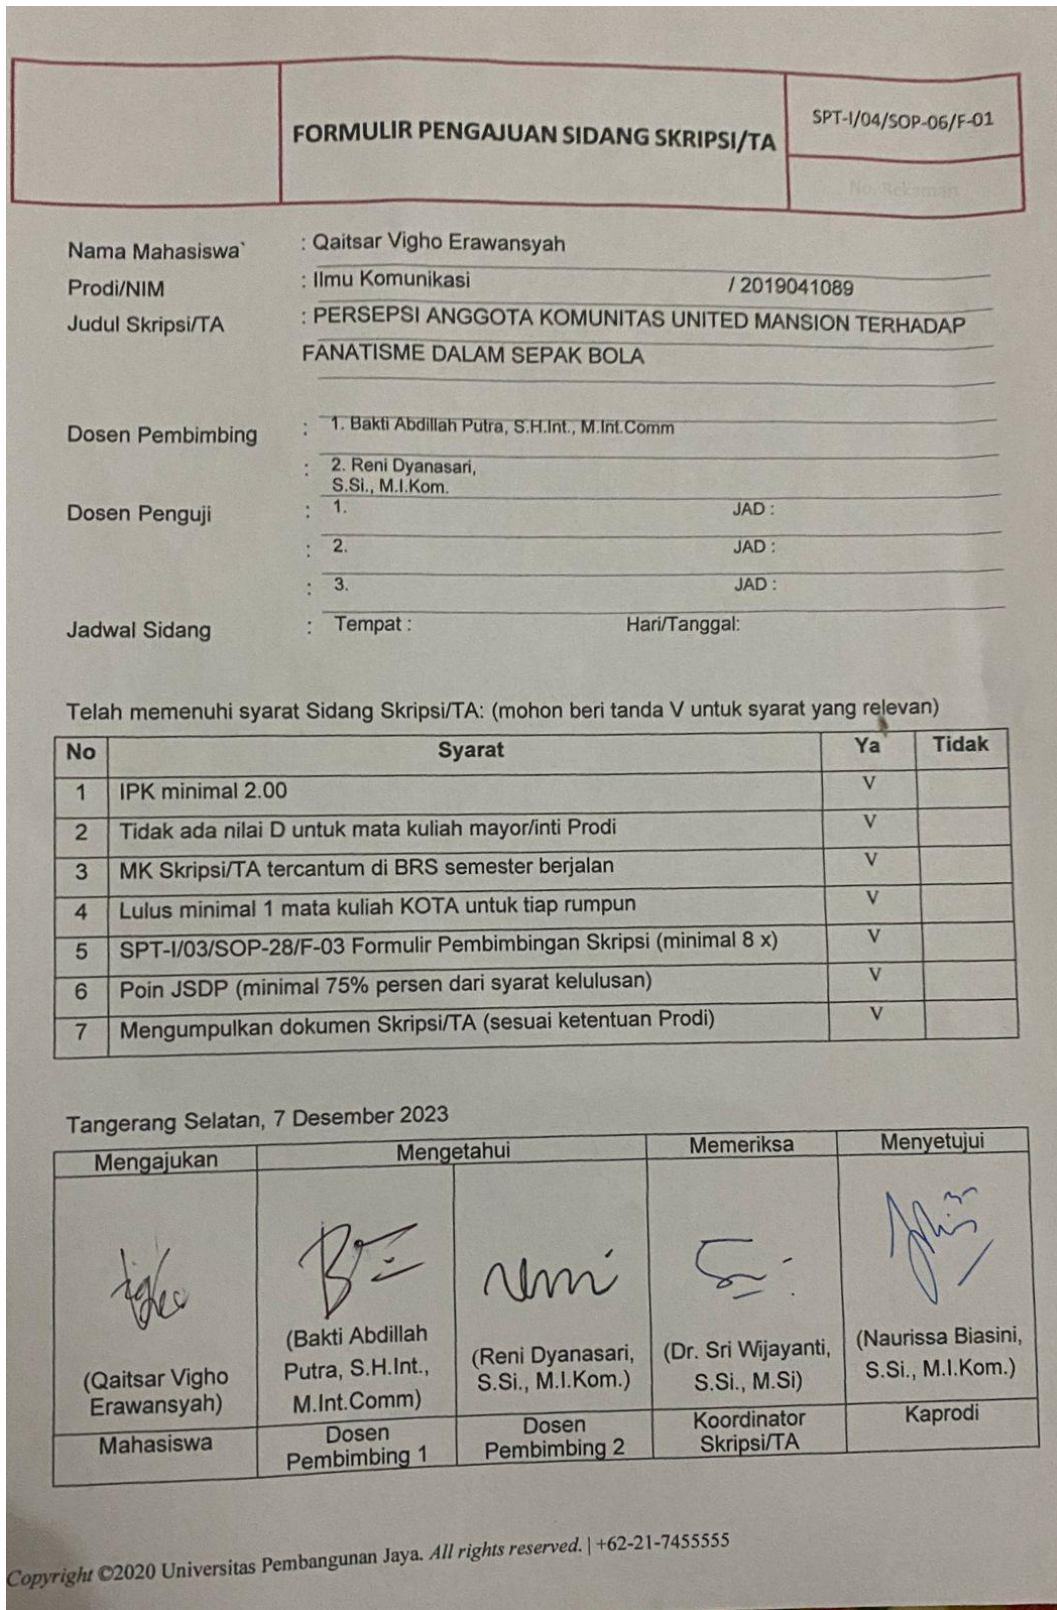 FORMULIR PENGAJUAN SIDANG SKRIPSI/TA
SPT-I/04/SOP-06/F-01
No. Rekaman
Nama Mahasiswa` : Qaitsar Vigho Erawansyah
Prodi/NIM : Ilmu Komunikasi / 2019041089
Judul Skripsi/TA : PERSEPSI ANGGOTA KOMUNITAS UNITED MANSION TERHADAP
FANATISME DALAM SEPAK BOLA
Dosen Pembimbing : 1. Bakti Abdillah Putra, S.H.Int., M.Int.Comm
: 2. Reni Dyanasari,
S.Si., M.I.Kom.
Dosen Penguji : 1. JAD :
: 2. JAD :
: 3. JAD :
Jadwal Sidang : Tempat : Hari/Tanggal:
Telah memenuhi syarat Sidang Skripsi/TA: (mohon beri tanda V untuk syarat yang relevan)
No Syarat Ya Tidak
1 IPK minimal 2.00 V
2 Tidak ada nilai D untuk mata kuliah mayor/inti Prodi V
3 MK Skripsi/TA tercantum di BRS semester berjalan V
4 Lulus minimal 1 mata kuliah KOTA untuk tiap rumpun V
5 SPT-I/03/SOP-28/F-03 Formulir Pembimbingan Skripsi (minimal 8 x) V
6 Poin JSDP (minimal 75% persen dari syarat kelulusan) V
7 Mengumpulkan dokumen Skripsi/TA (sesuai ketentuan Prodi) V
Tangerang Selatan, 7 Desember 2023
Mengajukan Mengetahui Memeriksa Menyetujui
(Qaitsar Vigho
Erawansyah)
(Bakti Abdillah
Putra, S.H.Int.,
M.Int.Comm)
(Reni Dyanasari,
S.Si., M.I.Kom.)
(Dr. Sri Wijayanti,
S.Si., M.Si)
(Naurissa Biasini,
S.Si., M.I.Kom.)
Mahasiswa
Dosen
Pembimbing 1
Dosen
Pembimbing 2
Koordinator
Skripsi/TA
Kaprodi
Copyright ©2020 Universitas Pembangunan Jaya. All rights reserved. | +62-21-7455555